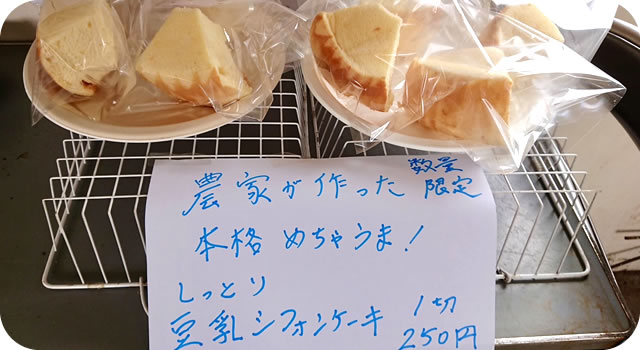 農家が作った 数量限定
本格めちゃうま!
しっとり
豆乳シフォンケーキ 1切 250円